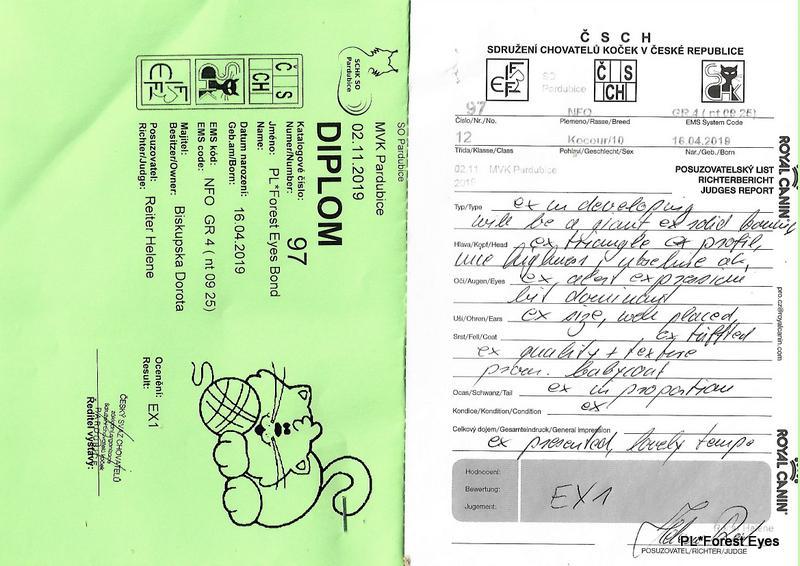 SO Pardubice
MVK Pardubice
02.11.2019
SCHK SO
Pardubice
Č S
CH
SCHK
FIFE
DIPLOM
Katalogové číslo:
Numer/Number: 97
Jméno: PL*Forest Eyes Bond
Name:
Datum narození: 16.04.2019
Geb.am/Born:
EMS kód: NFO GR 4 ( nt 09 25)
EMS code:
Majitel: Biskupska Dorota
Besitzer/Owner:
Posuzovatel: Reiter Helene
Richter/Judge:
Ocenění: EX1
Result:
ČESKÝ SVAZ CHOVATELŮ
Ředitel výstavy:
Č S C H
SDRUŽENÍ CHOVATELŮ KOČEK V ČESKÉ REPUBLICE
FIFE
SO
Pardubice
Č S
CH
SCHK
97 NFO GR 4 ( nt 09 25)
Číslo/Nr./No. Plemeno/Rasse/Breed EMS System Code
12 Kocour/10 16.04.2019
Třída/Klasse/Class Pohlaví/Geschlecht/Sex Nar./Geb./Born
02.11 MVK Pardubice
2019
POSUZOVATELSKÝ LIST
RICHTERBERICHT
JUDGES REPORT
Typ/Type ex in developing
will be a giant ex solid boning
Hlava/Kopf/Head ex triangle ex profil,
nice highness, ok,
Oči/Augen/Eyes ex, alert expression
bit dominant
Uši/Ohren/Ears ex size, well placed,
ex tuffted
Srst/Fell/Coat
ex quality + texture
prom. babycoat
Ocas/Schwanz/Tail ex in proportion
Kondice/Kondition/Condition ex
Celkový dojem/Gesamteindruck/General impression
ex presented, lovely tempo
Hodnocení:
Bewertung: EX1
Jugement:
Helene
PL*Forest Eyes
POSUZOVATEL/RICHTER/JUDGE
ROYAL CANIN
pro.cz@royalcanin.com
ROYAL CANIN